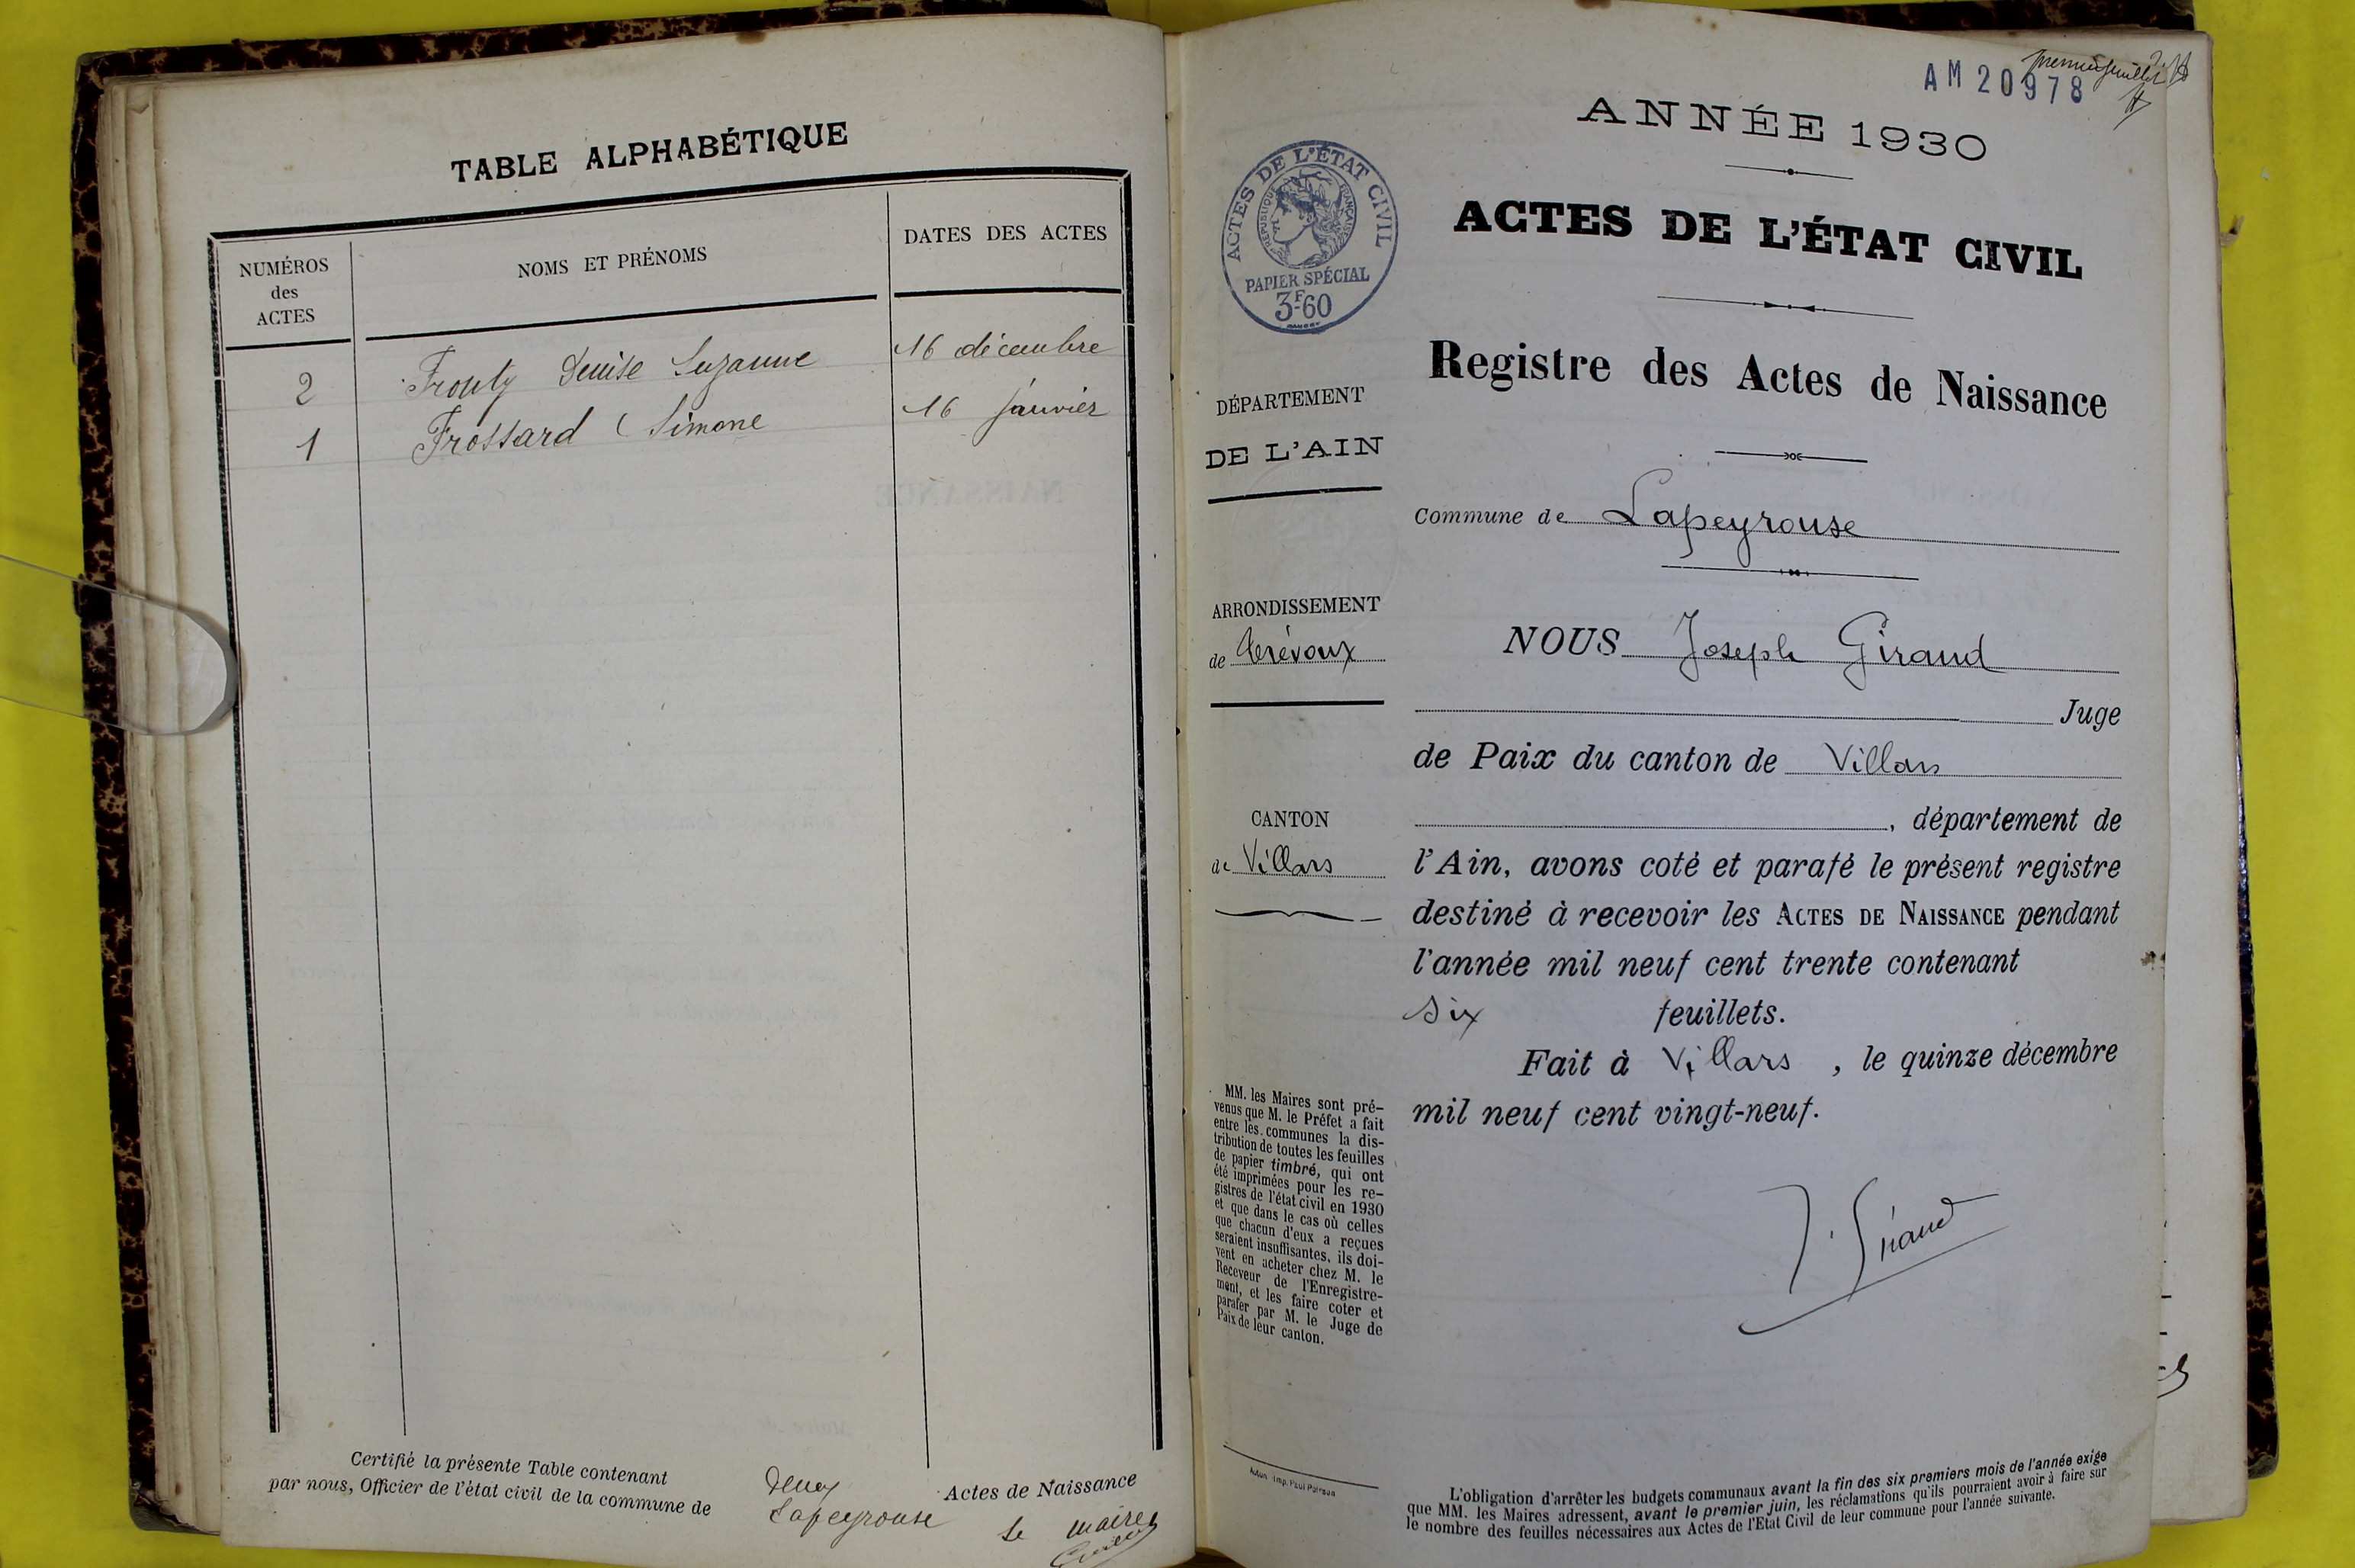 TABLE ALPHABÉTIQUE
NUMÉROS
des
ACTES
NOMS ET PRÉNOMS
DATES DES ACTES
2 Denise Suzanne 16 décembre
1 Frossard Simone 16 janvier
Certifié la présente Table contenant deux Actes de Naissance
par nous, Officier de l'état civil de la commune de Lapeyrouse
Le maire
premier feuillet
AM 20978
ANNÉE 1930
ACTES DE L'ÉTAT CIVIL
RÉPUBLIQUE FRANÇAISE
PAPIER SPÉCIAL
3F60
ACTES DE L'ÉTAT CIVIL
Registre des Actes de Naissance
DÉPARTEMENT
DE L'AIN
Commune de Lapeyrouse
ARRONDISSEMENT
de Trévoux
CANTON
de Villars
NOUS Joseph Giraud
Juge
de Paix du canton de Villars
, département de
l'Ain, avons coté et parafé le présent registre
destiné à recevoir les ACTES DE NAISSANCE pendant
l'année mil neuf cent trente contenant
six feuillets.
Fait à Villars , le quinze décembre
mil neuf cent vingt-neuf.
J. Giraud
MM. les Maires sont pré-
venus que M. le Préfet a fait
entre les communes la dis-
tribution de toutes les feuilles
de papier timbré, qui ont
été imprimées pour les re-
gistres de l'état civil en 1930
et que dans le cas où celles
que chacun d'eux a reçues
seraient insuffisantes, ils doi-
vent en acheter chez M. le
Receveur de l'Enregistre-
ment, et les faire coter et
parafer par M. le Juge de
Paix de leur canton.
L'obligation d'arrêter les budgets communaux avant la fin des six premiers mois de l'année exige
que MM. les Maires adressent, avant le premier juin, les réclamations qu'ils pourraient avoir à faire sur
le nombre des feuilles nécessaires aux Actes de l'Etat Civil de leur commune pour l'année suivante.